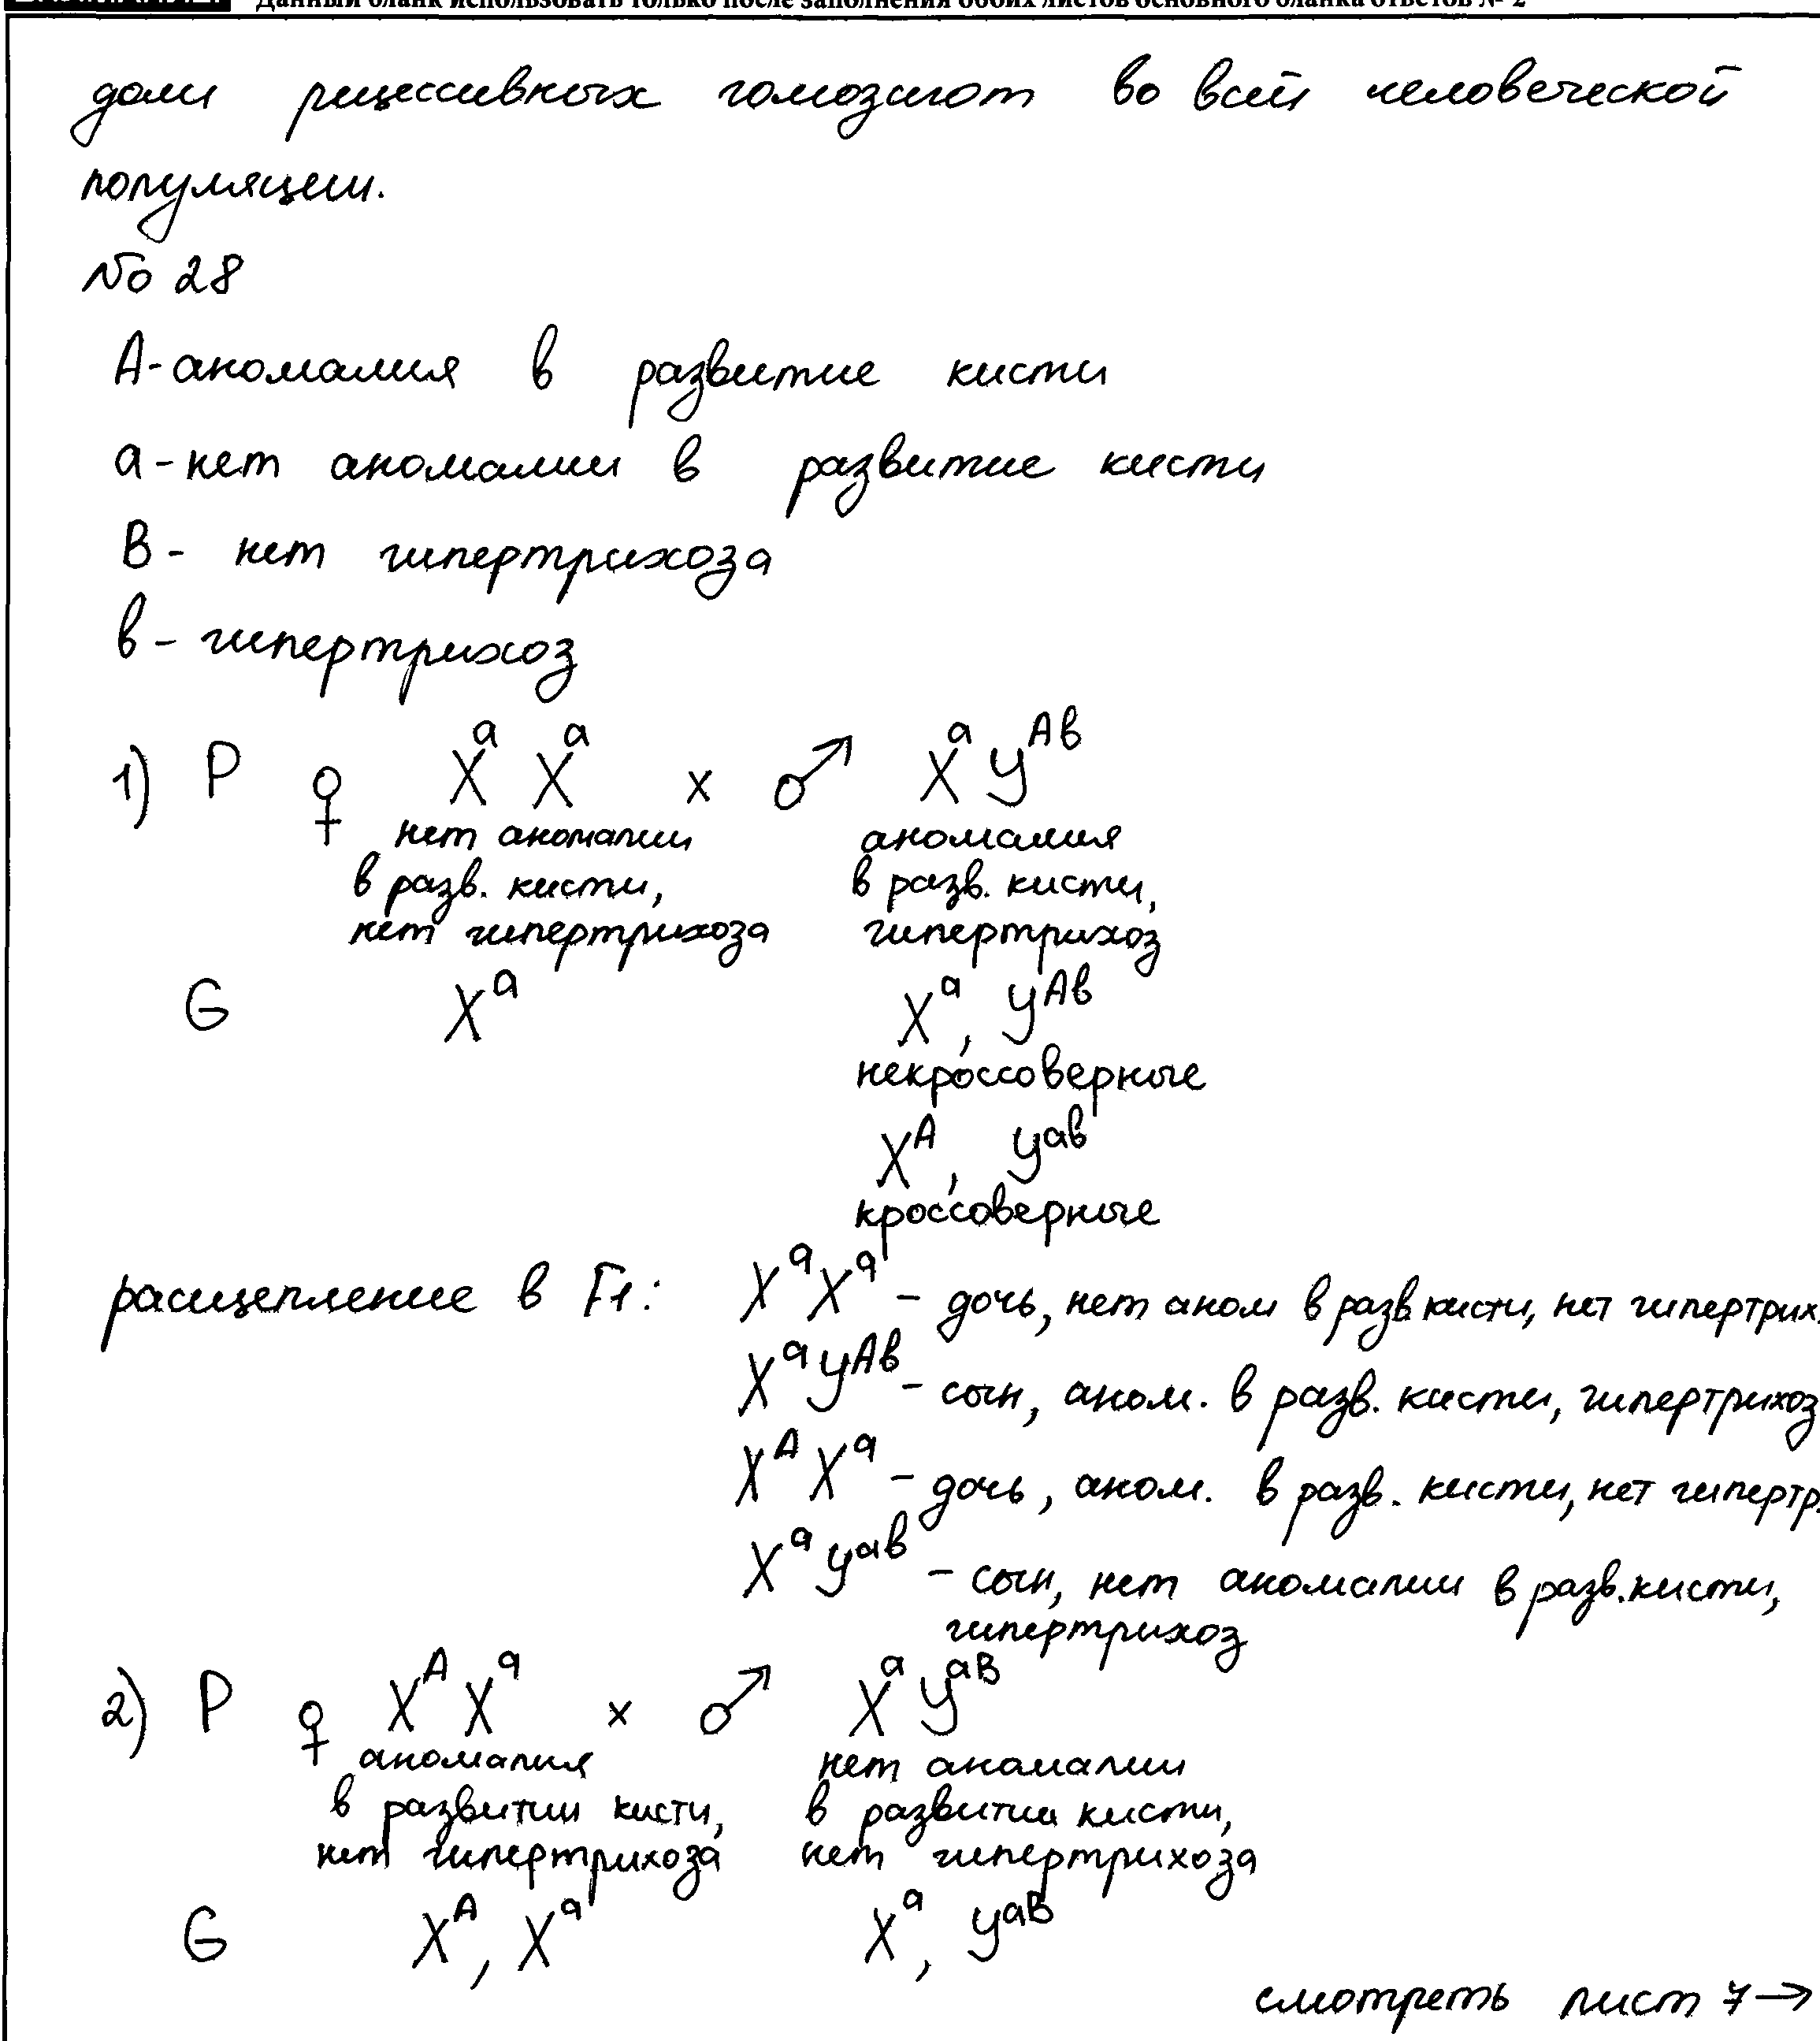 Данный бланк использовать только после заполнения обоих листов основного бланка ответов № 2
доли рецессивных гомозигот во всей человеческой
популяции.
No 28
А - аномалия в развитие кисти
а - нет аномалии в развитие кисти
В - нет гипертрихоза
в - гипертрихоз
1) P ♀ XᵃXᵃ x ♂ XᵃYᴬᵇ
нет аномалии аномалия
в разв. кисти, в разв. кисти,
нет гипертрихоза гипертрихоз
G Xᵃ Xᵃ, Yᴬᵇ
некроссоверные
Xᴬ, Yᵃᵇ
кроссоверные
расщепление в F1: XᵃXᵃ - дочь, нет аном в разв кисти, нет гипертрих.
XᵃYᴬᵇ - сын, аном. в разв. кисти, гипертрихоз
XᴬXᵃ - дочь, аном. в разв. кисти, нет гипертр.
XᵃYᵃᵇ - сын, нет аномалии в разв. кисти,
гипертрихоз
2) P ♀ XᴬXᵃ x ♂ XᵃYᵃᴮ
аномалия нет аномалии
в развитии кисти, в развитии кисти,
нет гипертрихоза нет гипертрихоза
G Xᴬ, Xᵃ Xᵃ, Yᵃᴮ
смотреть лист 7 →